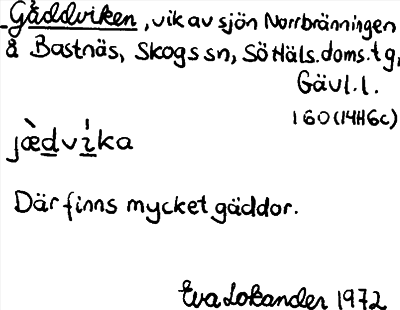 Gäddviken, vik av sjön Norrbränningen
å Bastnäs, Skogs sn, SöHäls.doms.tg,
Gävl.l.
160(14H6c)
jæ̀dvı̍ka
Där finns mycket gäddor.
Eva Lokander 1972